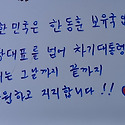 한 민국은 한동훈 보유국
당대표를 넘어 차기대통령
는 그날까지 끝까지
원하고 지지합니다 !!